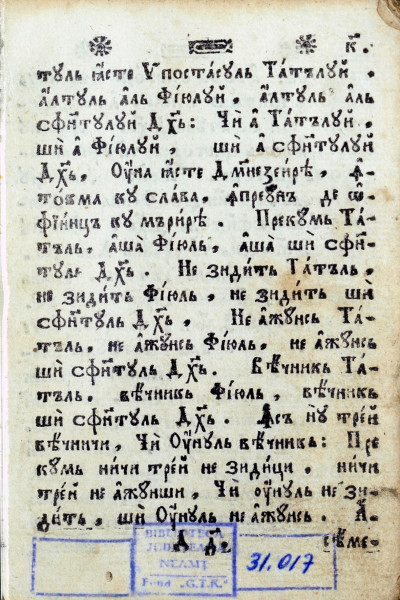 к҃.
тꙋль ꙗ҆сте Ѵпоста́сꙋль Та́тълꙋй,
а҆лтꙋль а҆ль Фі́юлꙋй, а҆лтꙋль а҆ль
сфн҃тꙋлꙋй Дх҃ь: Чи а҆ Та́тълꙋй,
шѝ а҆ Фі́юлꙋй, шѝ а҆ сфн҃тꙋлꙋй
Дх҃ь, Оу҆на ꙗ҆сте Дм҃незеи́рѣ, ꙟ҆-
тоо́ма кꙋ сла́ва, ꙟ҆преꙋ́нъ де ѡ҆-
фіи́нцъ кꙋ мъри́рѣ. Прекꙋмь Та́-
тъль, а҆ша̀ Фі́юль, а҆ша̀ шѝ сфн҃-
тꙋль Дх҃ь. Не зиди́ть Та́тъль,
не зиди́ть Фі́юль, не зиди́ть шѝ
сфн҃тꙋль Дх҃ь, Не а҆жꙋ́нсь Та́-
тъль, не а҆жꙋ́нсь Фі́юль, не а҆жꙋ́нсь
шѝ сфн҃тꙋль Дх҃ь. Вѣ́чникь Та́-
тъль, вѣ́чникь Фі́юль, вѣ́чникь
шѝ сфн҃тꙋль Дх҃ь. Дсь нꙋ трей
вѣ́чничи, Чѝ Оу҆нꙋль вѣ́чникь: Пре
кꙋмь ни́чи тре́й не зиди́ци, ни́чи
тре́й не а҆жꙋ́нши, Чѝ ᲂу҆нꙋль не зи-
ди́ть, шѝ Оу҆нꙋль не а҆жꙋ́нсь. А҆-
А д҃.
сѣ́ме-
BIBLIOTECA
JUDEŢEANĂ
NEAMŢ
Fond „G.T.K."
31.017